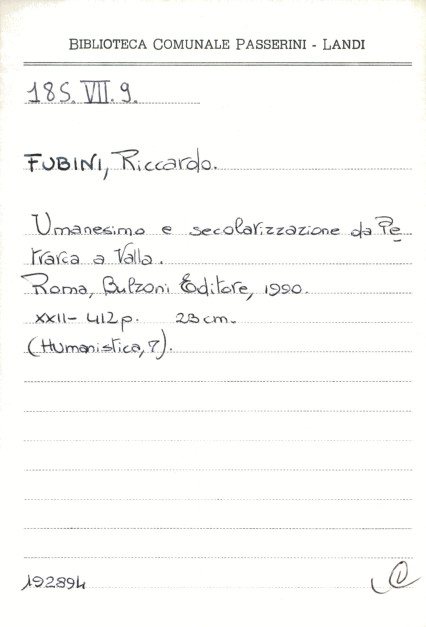 BIBLIOTECA COMUNALE PASSERINI - LANDI
185. VII. 9.
FUBINI, Riccardo.
Umanesimo e secolarizzazione da Pe
trarca a Valla.
Roma, Bulzoni Editore, 1990.
XXII- 412 p. 23 cm.
(Humanistica, 7).
192894